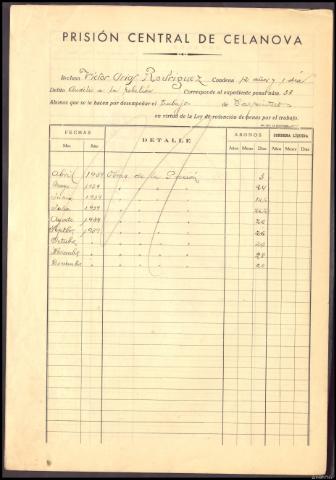 PRISIÓN CENTRAL DE CELANOVA
Recluso Victor Rodriguez Condena 12 años y 1 día
Delito Auxilio a la rebelión Corresponde al expediente penal núm. 38
Abonos que se le hacen por desempeñar el trabajo de Carpintero
en virtud de la Ley de redención de penas por el trabajo.
FECHAS DETALLE ABONOS CONDENA LIQUIDA
Mes Año Años Meses Días Años Meses Días
Abril 1939 Obras de la Prisión 3
Mayo 1939 " " " " 24
Junio 1939 " " " "
Julio 1939 " " " "
Agosto 1939 " " " " 26
Septbre 1939 " " " " 26
Octubre " " " " " 26
Noviembre " " " " " 28
Diciembre " " " " " 20